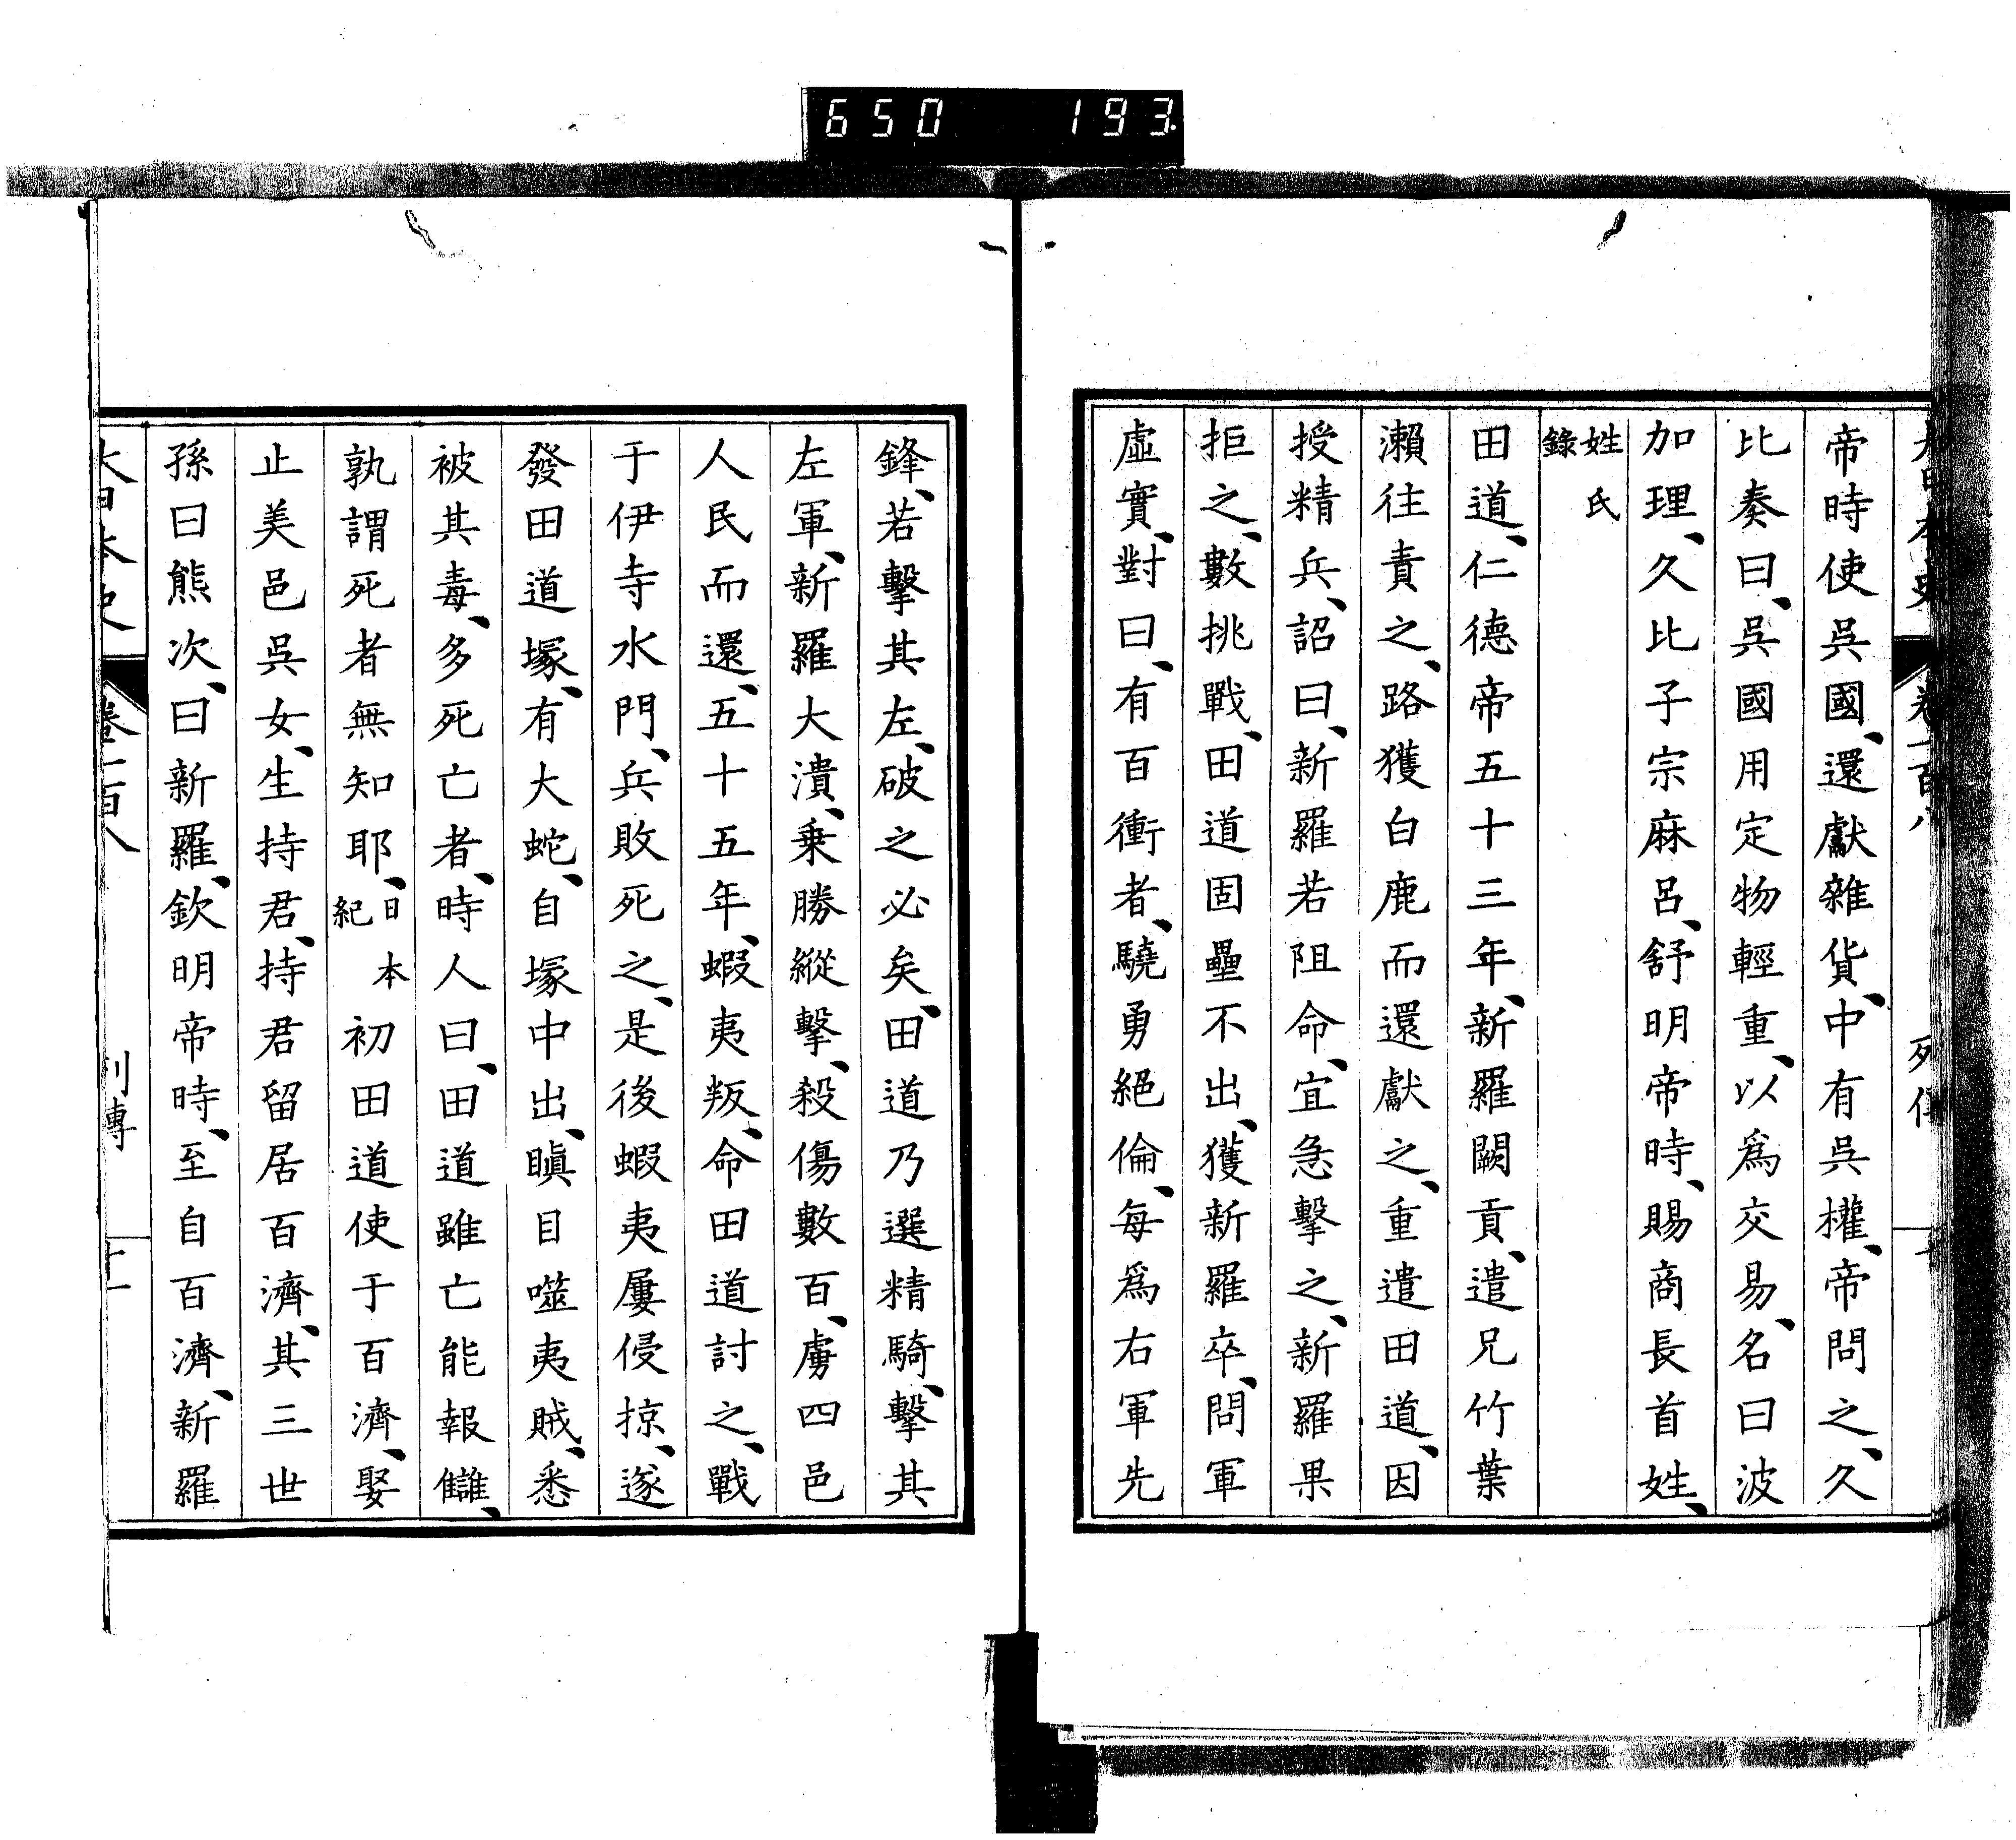 650 193
大日本史 卷一百八 列傳 十
帝時使吳國、還獻雜貨、中有吳權、帝問之、久
比奏曰、吳國用定物輕重、以爲交易、名曰波
加理、久比子宗麻呂、舒明帝時、賜商長首姓、
姓氏錄
田道、仁德帝五十三年、新羅闕貢、遣兄竹葉
瀨往責之、路獲白鹿而還獻之、重遣田道、因
授精兵、詔曰、新羅若阻命、宜急擊之、新羅果
拒之、數挑戰、田道固壘不出、獲新羅卒、問軍
虛實、對曰、有百衝者、驍勇絕倫、每爲右軍先
鋒、若擊其左、破之必矣、田道乃選精騎、擊其
左軍、新羅大潰、乗勝縱擊、殺傷數百、虜四邑
人民而還、五十五年、蝦夷叛、命田道討之、戰
于伊寺水門、兵敗死之、是後蝦夷屢侵掠、遂
發田道塚、有大蛇、自塚中出、瞋目噬夷賊、悉
被其毒、多死亡者、時人曰、田道雖亡能報讎、
孰謂死者無知耶、日本紀 初田道使于百濟、娶
止美邑吳女、生持君、持君留居百濟、其三世
孫曰熊次、曰新羅、欽明帝時、至自百濟、新羅
大日本史 卷一百八 列傳 十一